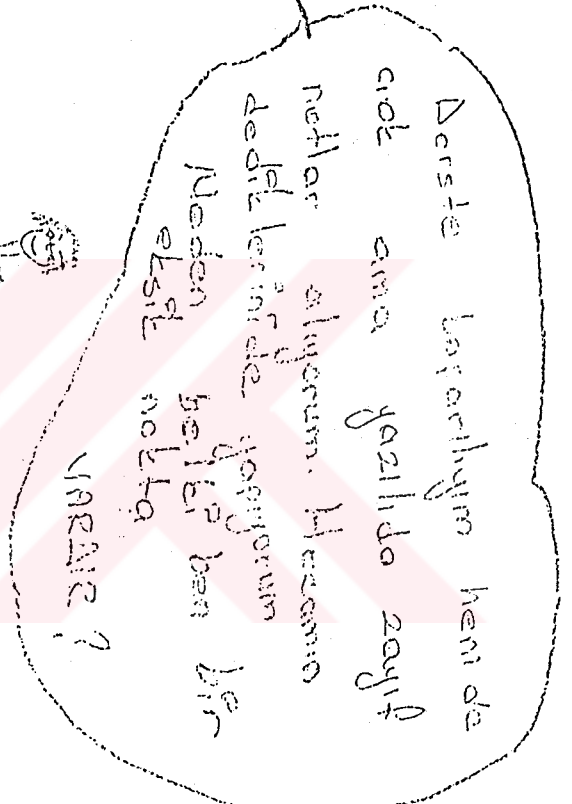 Derste başarılıyım hem de
çok ama yazılıda zayıf
notlar alıyorum. Hocamın
dediklerini de yapıyorum
Neden belki ben bir
eksik nokta
VARMIZ ?